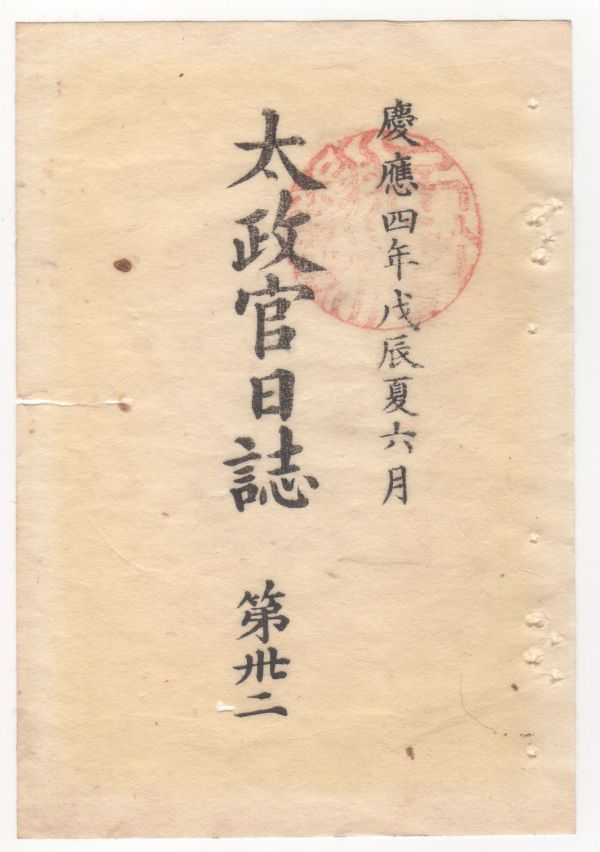 慶應四年戊辰夏六月
太政官日誌 第卅二